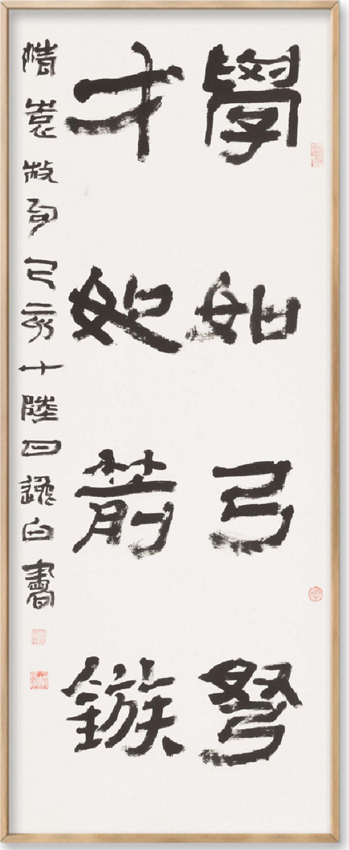 學如弓弩
才如箭鏃
清袁枚句己亥十陸日白書